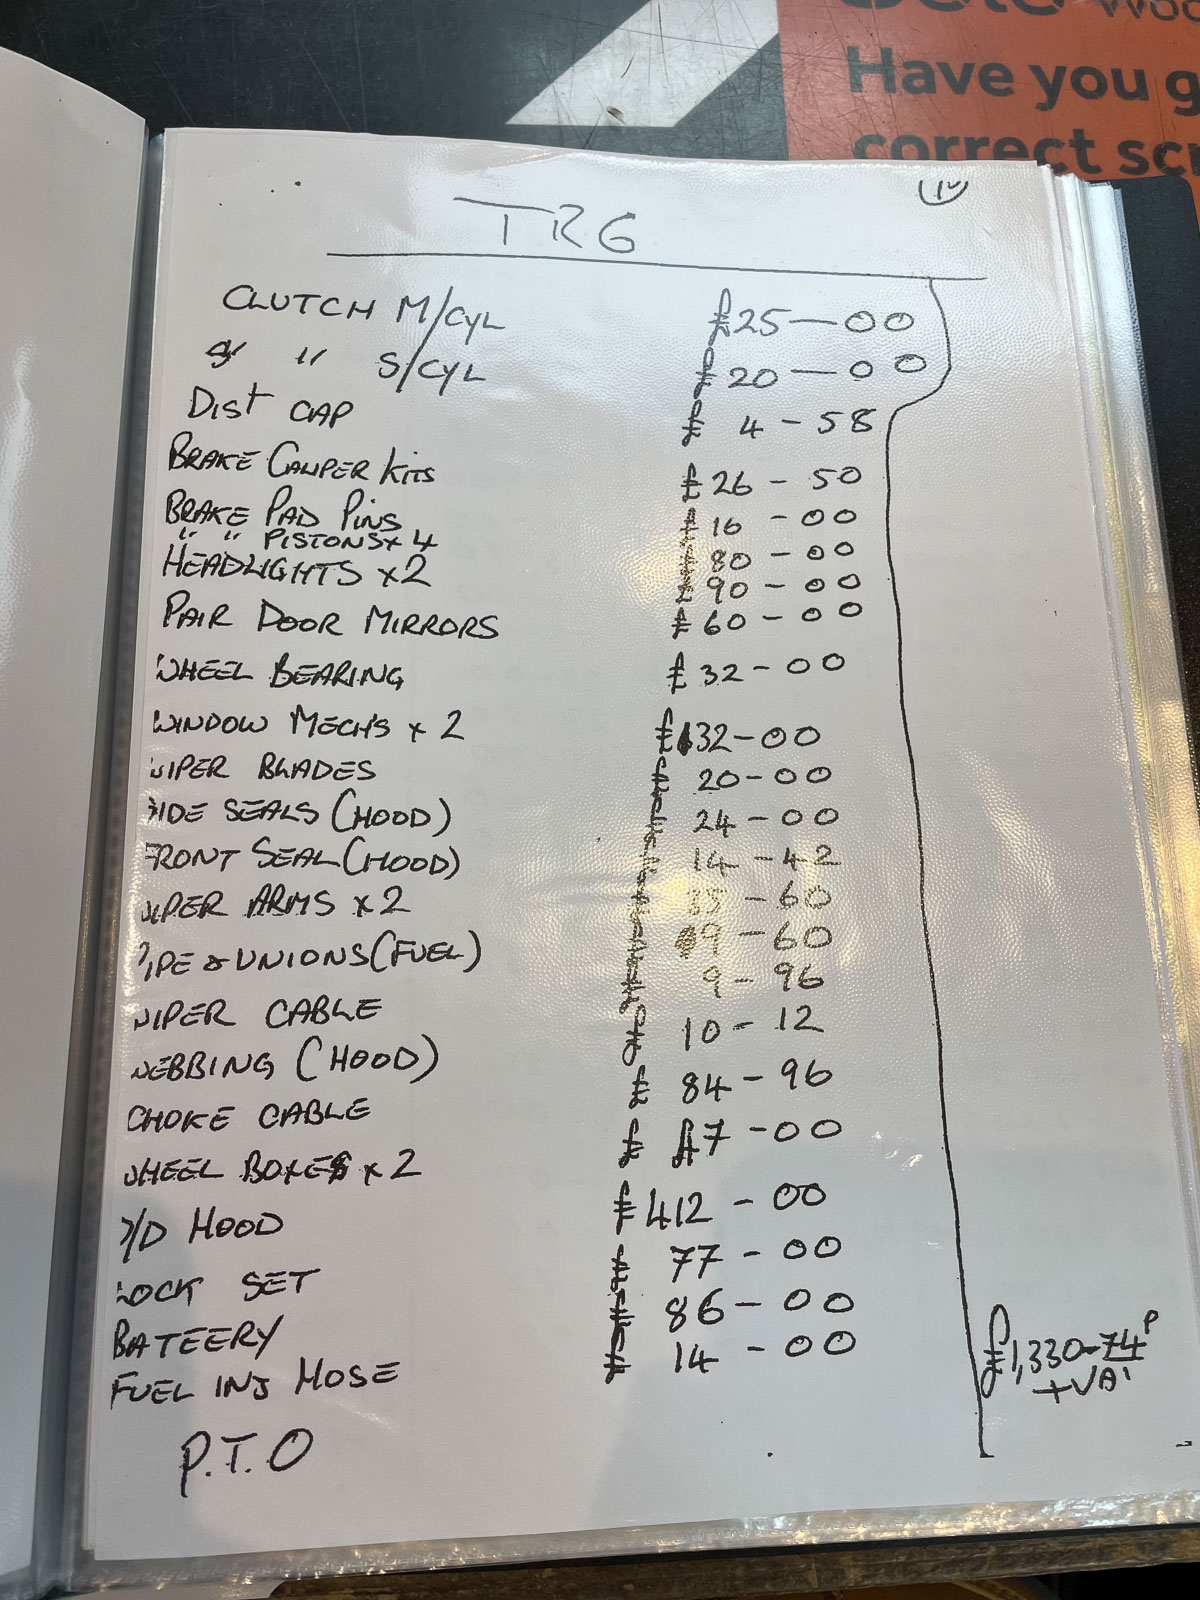 Have you g
correct scr
TR6
CLUTCH M/CYL £25—00
" " S/CYL £20—00
Dist CAP £ 4-58
BRAKE CALIPER KITS £26-50
BRAKE PAD PINS £16-00
" " PISTONS x 4 £80-00
HEADLIGHTS x2 £90-00
PAIR DOOR MIRRORS £60-00
WHEEL BEARING £32-00
WINDOW MECH'S x 2 £132-00
WIPER BLADES £20-00
SIDE SEALS (HOOD) £24-00
FRONT SEAL (HOOD) £14-42
WIPER ARMS x 2 £35-60
PIPE & UNIONS (FUEL) £9-60
WIPER CABLE £9-96
WEBBING (HOOD) £10-12
CHOKE CABLE £84-96
WHEEL BOXES x 2 £47-00
HOOD £412-00
LOCK SET £77-00
BATEERY £86-00
FUEL INJ HOSE £14-00
£1,330-74P
+VAT
P.T.O